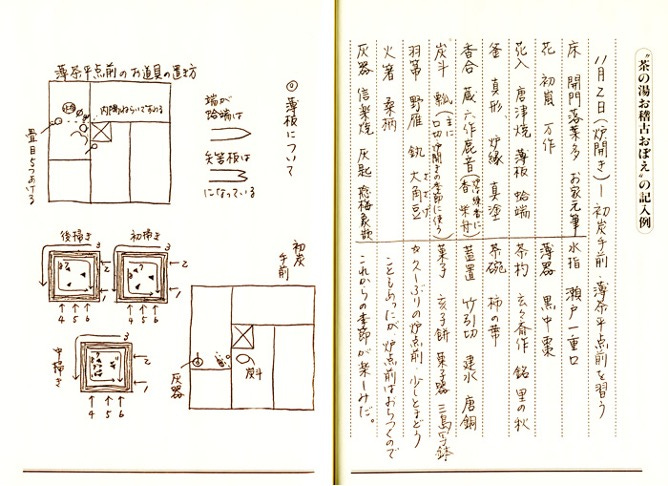 "茶の湯お稽古おぼえ"の記入例
11月2日(炉開き)ー初炭手前 薄茶平点前を習う
床 開門落葉多 お家元筆
水指 瀬戸一重口
花 初嵐 万作
薄器 黒中棗
花入 唐津焼 薄板 蛤端
茶杓 玄々斎作 銘 里の秋
釜 真形 炉縁 真塗
茶碗 柿の蔕
香合 蔵六作鹿香
蓋置 竹引切 建水 唐銅
炭斗 瓢(主に口切・炉開きの季節に使う)
菓子 亥子餅 菓子器 三島写鉢
羽箒 野雁 釻 大角豆
☆久しぶりの炉点前 少しとまどう
火箸 桑柄
こともあったが 炉点前はおちつくので
灰器 信楽焼 灰匙
これからの季節が楽しみだ。
薄茶平点前のお道具の置き方
内隅ねらいですわる
畳目5つあける
◎薄板について
端が
蛤端は
矢筈板は
になっている
後掃き
3
2
1
4 5 6
初掃き
3
2
1
4 5 6
中掃き
3
2
1
4 5 6
初炭
手前
炭斗
灰器